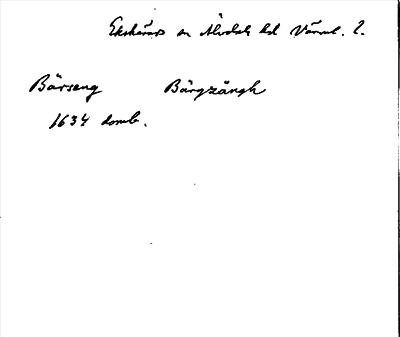 Ekshärads sn Älvdals hd Värml. l.
Bärseng Bärgzängh
1634 domb.